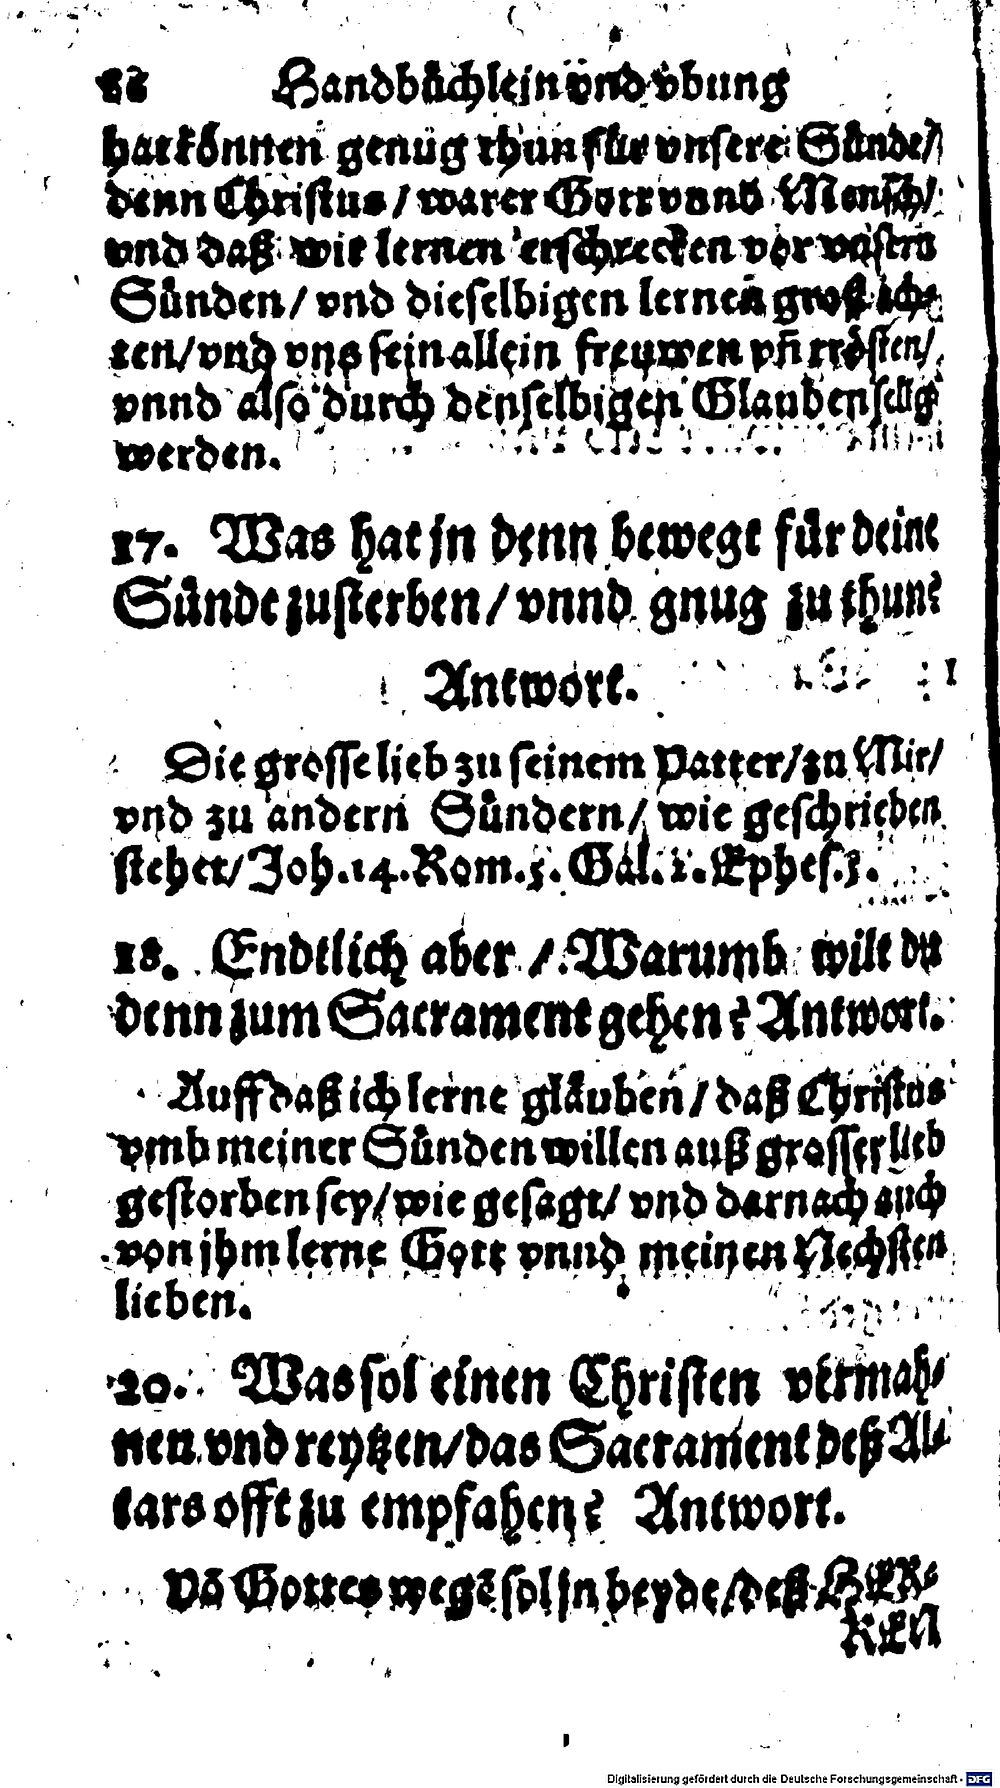 86 Handbüchlein vnd vbung
hat können genüg thun für vnsere Sünde/
denn Christus / warer Gott vnnd Mensch/
vnd daß wir lernen erschrecken vor vnsern
Sünden / vnd dieselbigen lernen groß ach-
ten/vnd vns sein allein freuwen vñ trösten/
vnnd also durch denselbigen Glauben selig
werden.
17. Was hat jn denn bewegt für deine
Sünde zusterben / vnnd gnug zu thun?
Antwort.
Die grosse lieb zu seinem Vatter/zu Mir/
vnd zu andern Sündern/ wie geschrieben
stehet/ Joh.14. Rom.5. Gal.2. Ephes.3.
18. Endtlich aber / Warumb wilt du
denn zum Sacrament gehen? Antwort.
Auff daß ich lerne gläuben / daß Christus
vmb meiner Sünden willen auß grosser lieb
gestorben sey/ wie gesagt/ vnd darnach auch
von jhm lerne Gott vnnd meinen Nechsten
lieben.
20. Was sol einen Christen vermah-
nen vnd reytzen/das Sacrament deß Al-
tars offt zu empfahen? Antwort.
Võ Gottes wegẽ sol jn beyde/deß HER-
REN
Digitalisierung gefördert durch die Deutsche Forschungsgemeinschaft - DFG